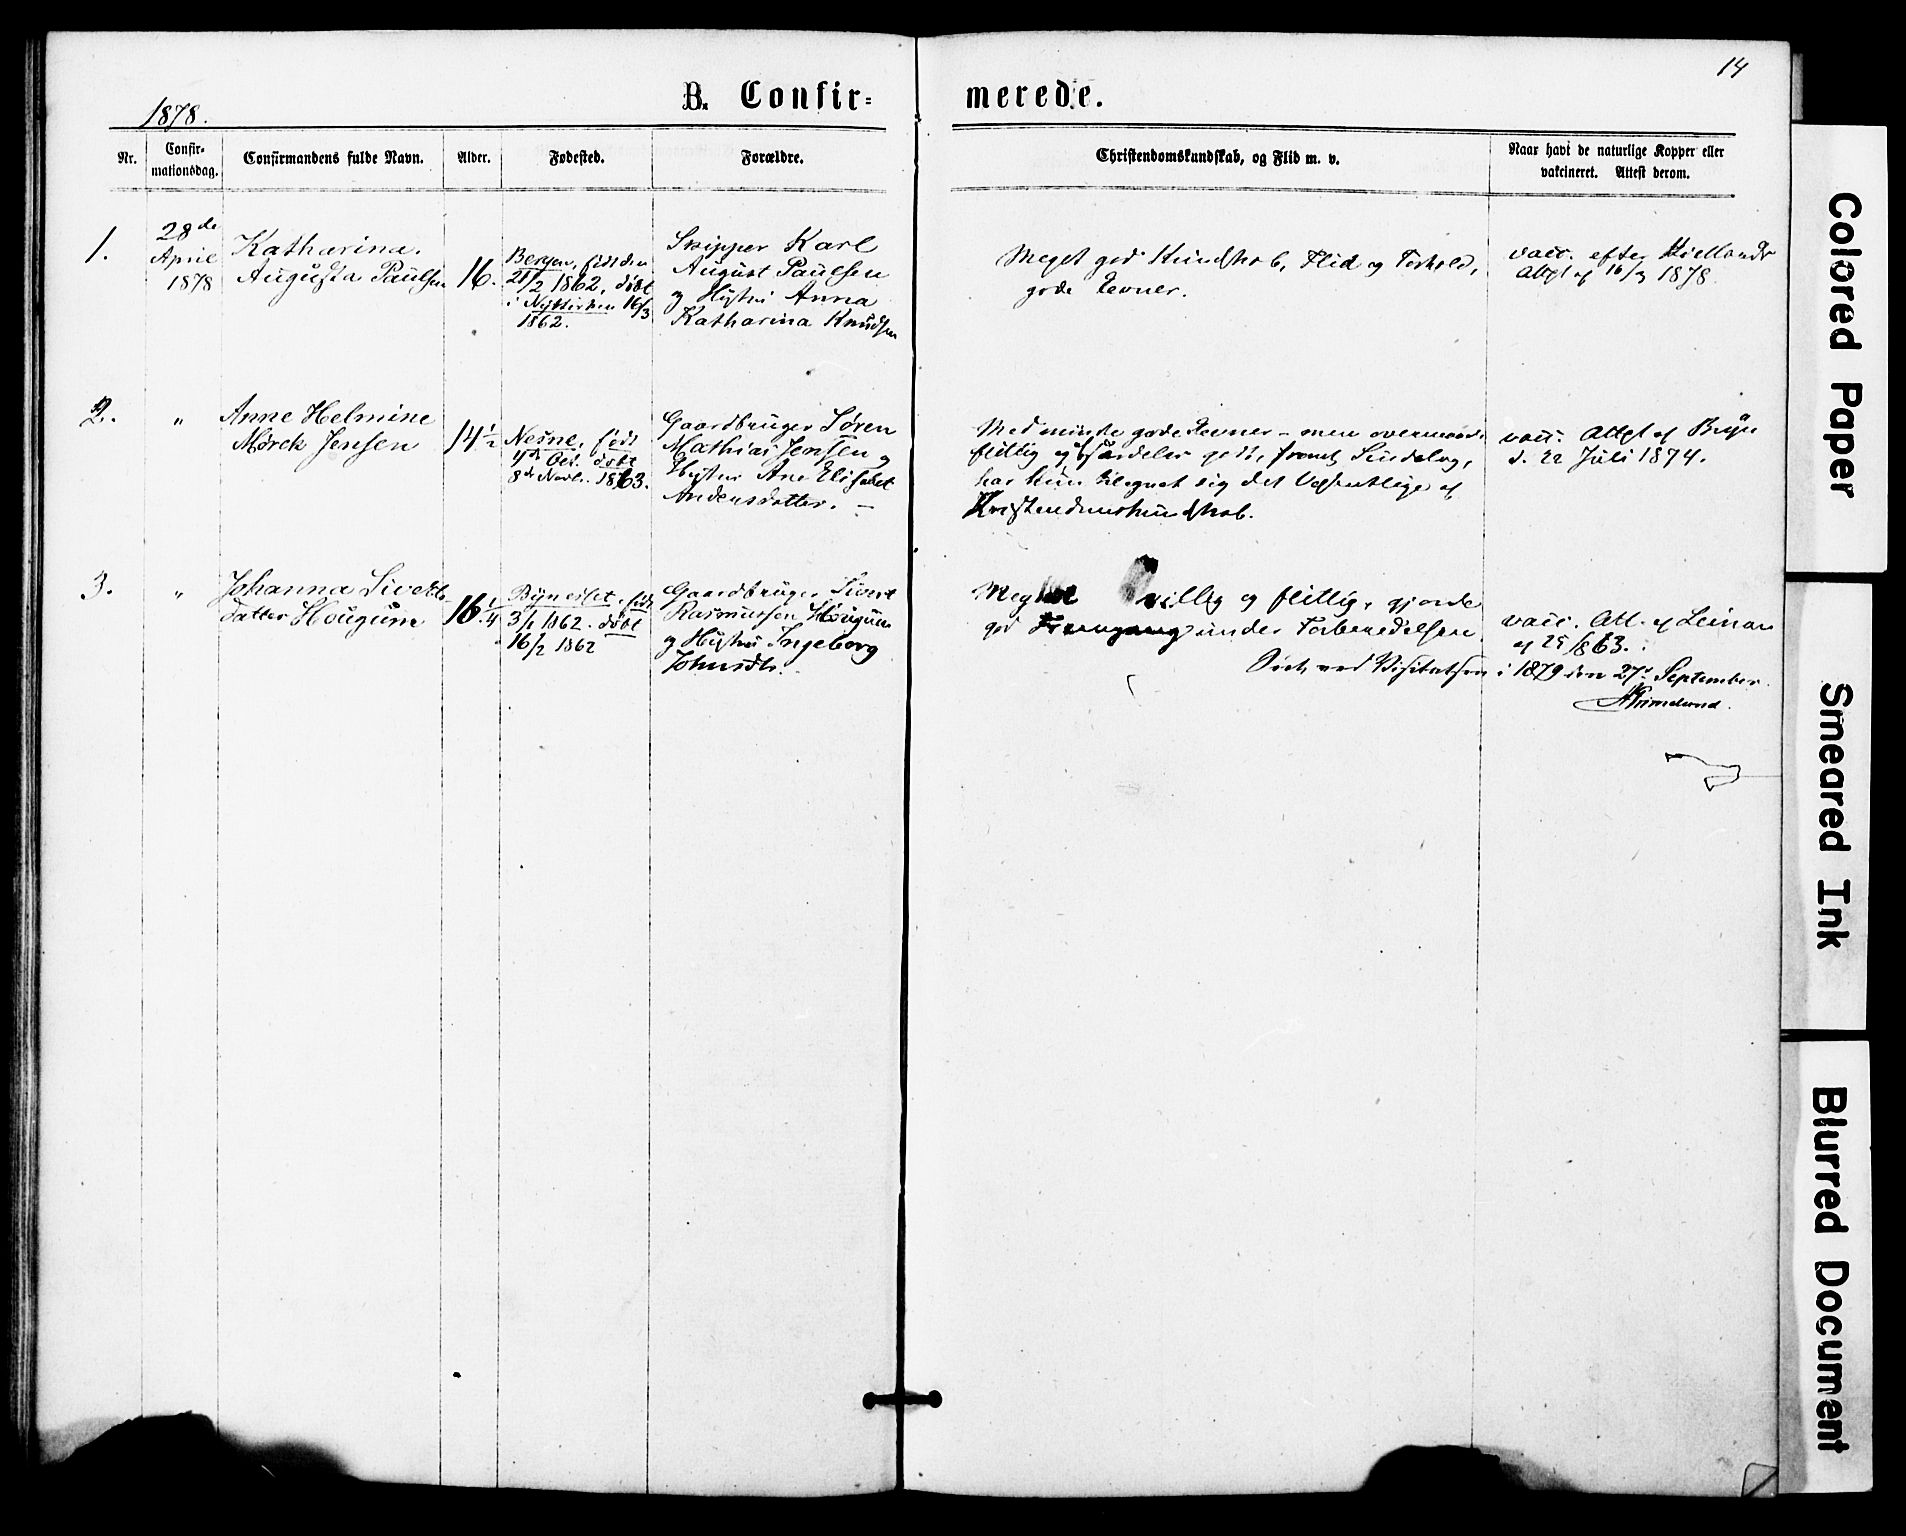 14
1878.
B. Confir=
merede.
Nr.
Confir-
mationsdag.
Confirmandens fulde Navn.
Alder.
Fødested.
Forældre.
Christendomskundskab, og Flid m. v.
Naar havt de naturlige Kopper eller
vakcineret. Attest derom.
1.
28de
April
1878
Katharina
Augusta Paulsen
16.
Bergen, født den
21/2 1862, døbt
i Nykirken 16/3
1862.
Skipper Karl
August Paulsen
og Hustru Anna
Katharina Knudsen
Meget god Kundskab, Flid og Forhold,
gode Evner.
vacc. efter Kiellands
Attest af 16/3 1878.
2.
"
Anne Helmine
Mørck Jensen
14 1/2
Nesne, født
4de Oct. døbt
8de Novb. 1863.
Gaardbruger Søren
Mathias Jensen og
Hustru Ane Elisabet
Andersdatter. —
Med mindre gode Evner – men overmaade
flittig og særdeles godt, fromt Sindelag,
har hun tilegnet sig det Væsentlige af
Kristendomskundskab.
vacc. Attst af
d. 22 Juli 1874.
3.
"
Johanna Siverts-
datter Hougum
16 1/4
Bynesset, født
3/1 1862. døbt
16/2 1862
Gaardbruger Sivert
Rasmussen Hougum
og Hustru Ingeborg
Johnsdtr.
villig og flittig, gjorde
god Fremgang under Forberedelsen
vacc. Att. af Leinan
af 25/8 63.
Seet ved Visitatsen i 1879 den 27de September
Grimelund.
Colored Paper
Smeared Ink
Blurred Document